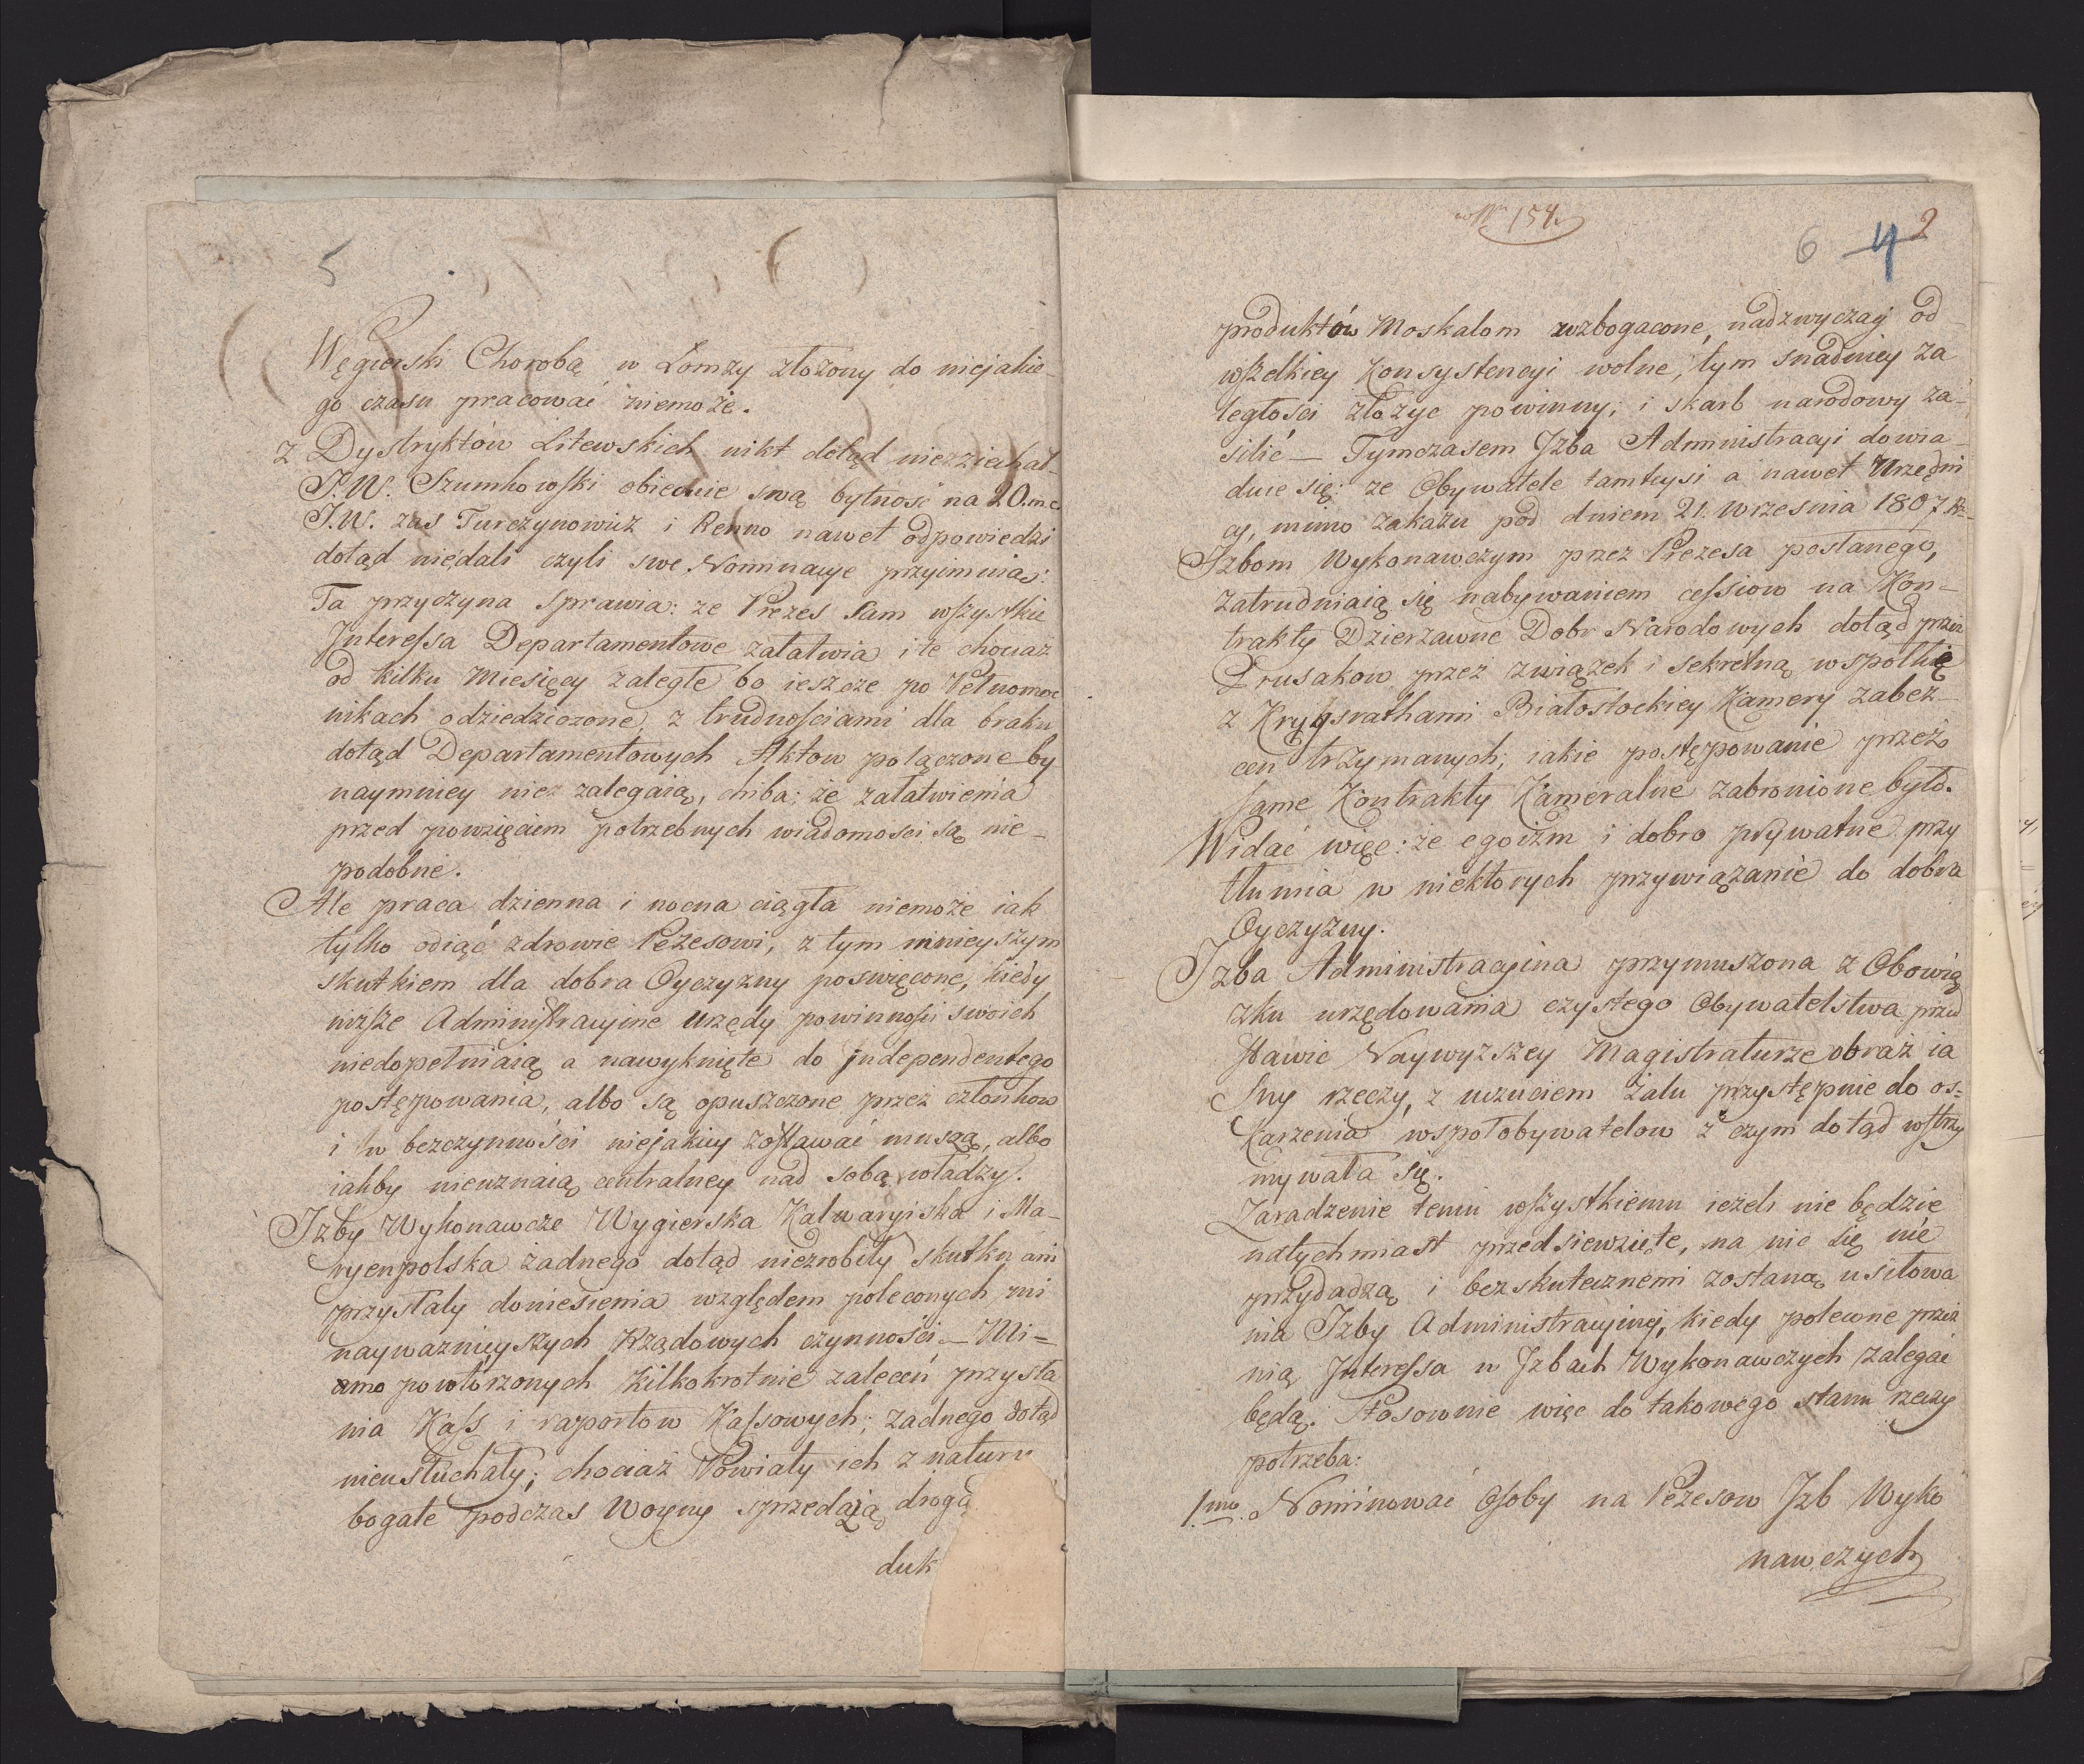 5
Węgierski Chorobą w Łomzy złożony do niejakie-
go czasu pracować niemoże.
Z Dystryktów Litewskich nikt dotąd niezziechał-
J.W. Szumkowski obiecuie swą bytność na 20. m.c.
J.W. zas Turczynowicz i Renno nawet odpowiedzi
dotąd niedali czyli swe Nominacye przyimuią:
Ta przyczyna sprawia: ze Prezes sam wszystkie
Interessa Departamentowe załatwia i te chociaż
od kilku Miesięcy zaległe bo ieszcze po Pełnomoc
nikach odziedziczone, z trudnościami dla braku
dotąd Departamentowych Aktow połączone by
naymniey niez zalegaią, chiba; że załatwienia
przed powzięciem potrzebnych wiadomosci są nie-
podobne.
Ale praca dzienna i nocna ciągła niemoże iak
tylko odiąć zdrowie Pezesowi, z tym mnieyszym
skutkiem dla dobra Oyczyzny poswięcone, kiedy
nizsze Administracyine urzędy powinnosci swoich
niedopełniaią a nawyknięte do independentego
postępowania, albo są opuszczone przez członkow
i w bezczynności niejakiey zostawać muszą, albo
iakby nieuznaią centralney nad sobą władzy.
Izby Wykonawcze Wygierska Kalwaryiska i Ma-
ryenpolska żadnego dotąd niezrobiły skutku ani
przysłały doniesienia względem poleconych im
nayważnieyszych Rządowych czynności – Mi=
amo powtórzonych kilkokrotnie zaleceń przysła
nia Kass i raportow Kassowych; żadnego dotąd
nieusłuchały; chociaż Powiaty ich z natury
bogate podczas Woyny sprzedażą drogą
duk
154.
6 4 2
produktów Moskalom wzbogacone, nadzwyczay od
wszelkiey Konsystencyi wolne, tym snadniey za
ległości złożyc powinny; i skarb narodowy za-
silić – Tymczasem Izba Administracyi dowia-
duie się: ze Obywatele tamteysi a nawet Urzędni
cy, mimo zakazu pod dniem 21. Wrzesnia 1807 R.
Izbom Wykonawczym przez Prezesa posłanego,
zatrudniaią się nabywaniem cessiow na Kon-
trakty Dzierzawne Dobr Narodowych dotąd przez
Prusakow przez związek i sekretną wspołkę
z Krygsrathami Białostockiey Kamery zabez-
cen trzymanych; iakie postępowanie przez
same Kontrakty Kameralne zabronione było.
Widać więc: że egoizm i dobro prywatne przy
tłumia w niektorych przywiązanie do dobra
Oyczyzny.
Izba Administracyina przymuszona z Obowią
zku urzędowania czystego Obywatelstwa przed
stawic Naywyzszey Magistraturze obraz ia
sny rzeczy, z uczuciem żalu przystępuie do os=
karzenia wspołobywatelow z czym dotąd wstrzy
mywała się.
Zaradzenie temu wszystkiemu ieżeli nie będzie
natychmiast przedsiewzięte, na nic się nie
przydadzą i bezskutecznemi zostaną usiłowa
nia Izby Administracyiney, kiedy polecone przez
nią Interessa w Izbach Wykonawczych zalegać
będą. Stosownie więc do takowego stanu rzeczy
potrzeba:
1mo. Nominować Osoby na Pezesow Izb Wyko
nawczych